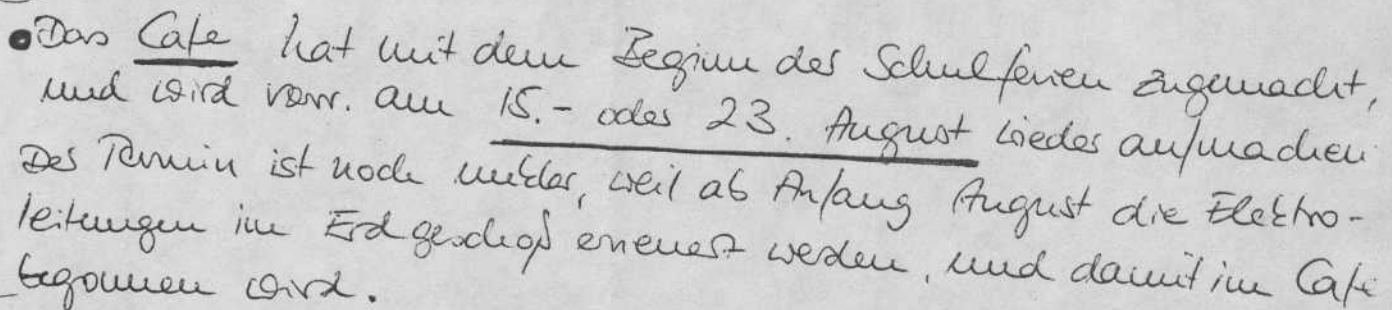 • Das Cafe hat mit dem Beginn der Schulferien zugemacht,
und wird vorr. am 15.- oder 23. August wieder aufmachen
Der Termin ist noch unklar, weil ab Anfang August die Elektro-
leitungen im Erdgeschoß erneuert werden, und damit im Cafe
begonnen wird.